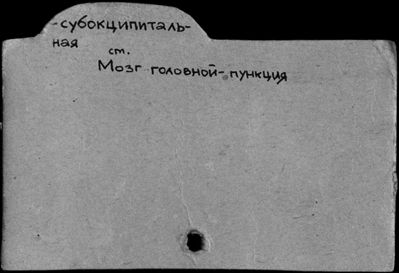 -субокципиталь-
ная
ст.
Мозг головной-пункция